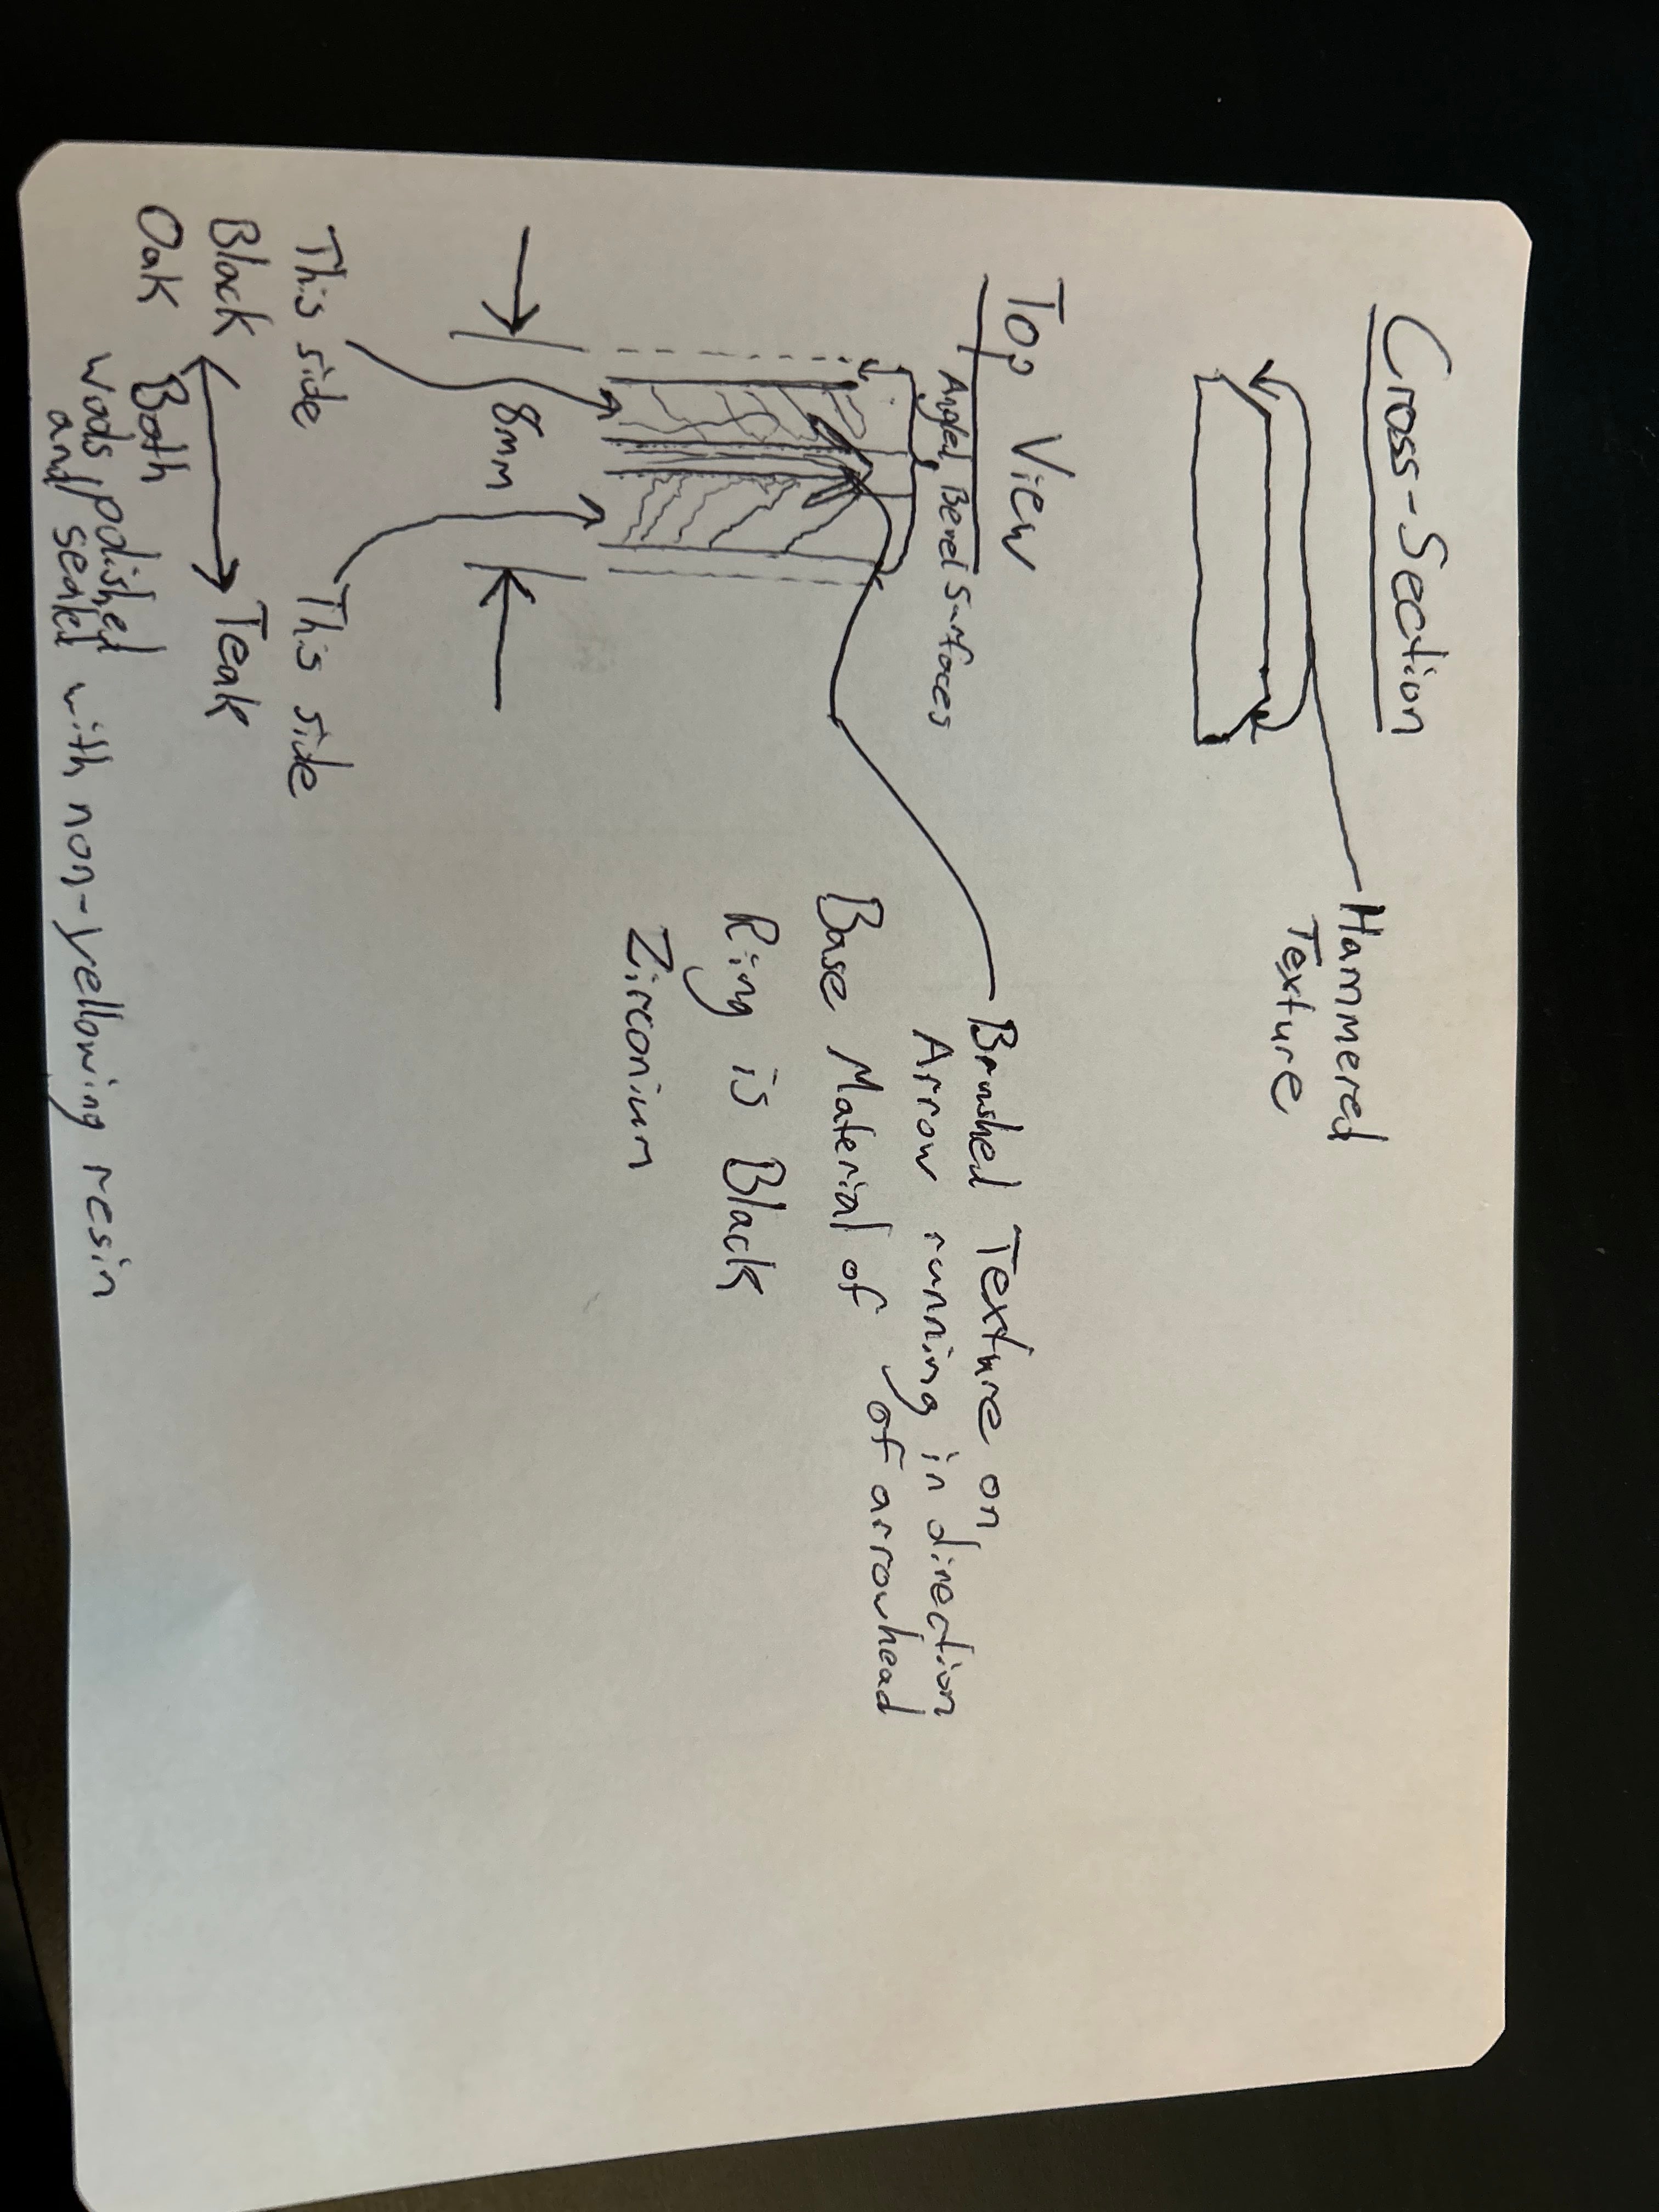 Cross-Section
Hammered
Texture
Top View
Angled Bevel Surfaces
Brushed Texture on
Arrow running in direction
of arrowhead
Base Material of
Ring is Black
Zirconium
8mm
This side
Black
Oak
This side
Teak
Both
woods polished
and sealed with non-yellowing resin